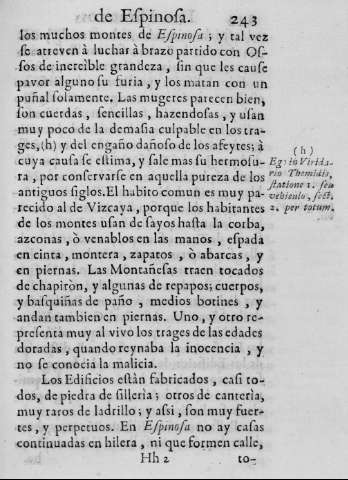 de Espinosa. 243
los muchos montes de Espinosa; y tal vez
se atreven à luchar à brazo partido con Os-
sos de increible grandeza, sin que les cause
pavor alguno su furia, y los matan con un
puñal solamente. Las mugeres parecen bien,
son cuerdas, sencillas, hazendosas, y usan
muy poco de la demasia culpable en los tra-
ges, (h) y del engaño dañoso de los afeytes; à
cuya causa se estima, y sale mas su hermosu-
ra, por conservarse en aquella pureza de los
antiguos siglos. El habito comun es muy pa-
recido al de Vizcaya, porque los habitantes
de los montes usan de sayos hasta la corba,
azconas, ò venablos en las manos, espada
en cinta, montera, zapatos, ò abarcas, y
en piernas. Las Montañesas traen tocados
de chapiròn, y algunas de repapos; cuerpos,
y basquiñas de paño, medios botines, y
andan tambien en piernas. Uno, y otro re-
presenta muy al vivo los trages de las edades
doradas, quando reynaba la inocencia, y
no se conocia la malicia.
Los Edificios estàn fabricados, casi to-
dos, de piedra de silleria; otros de canteria,
muy raros de ladrillo; y assi, son muy fuer-
tes, y perpetuos. En Espinosa no ay casas
continuadas en hilera, ni que formen calle,
Hh 2 to-
(h)
Egidio Virida-
rio Themidis,
statione 1. seu
vehiculo, sect.
2. per totum.